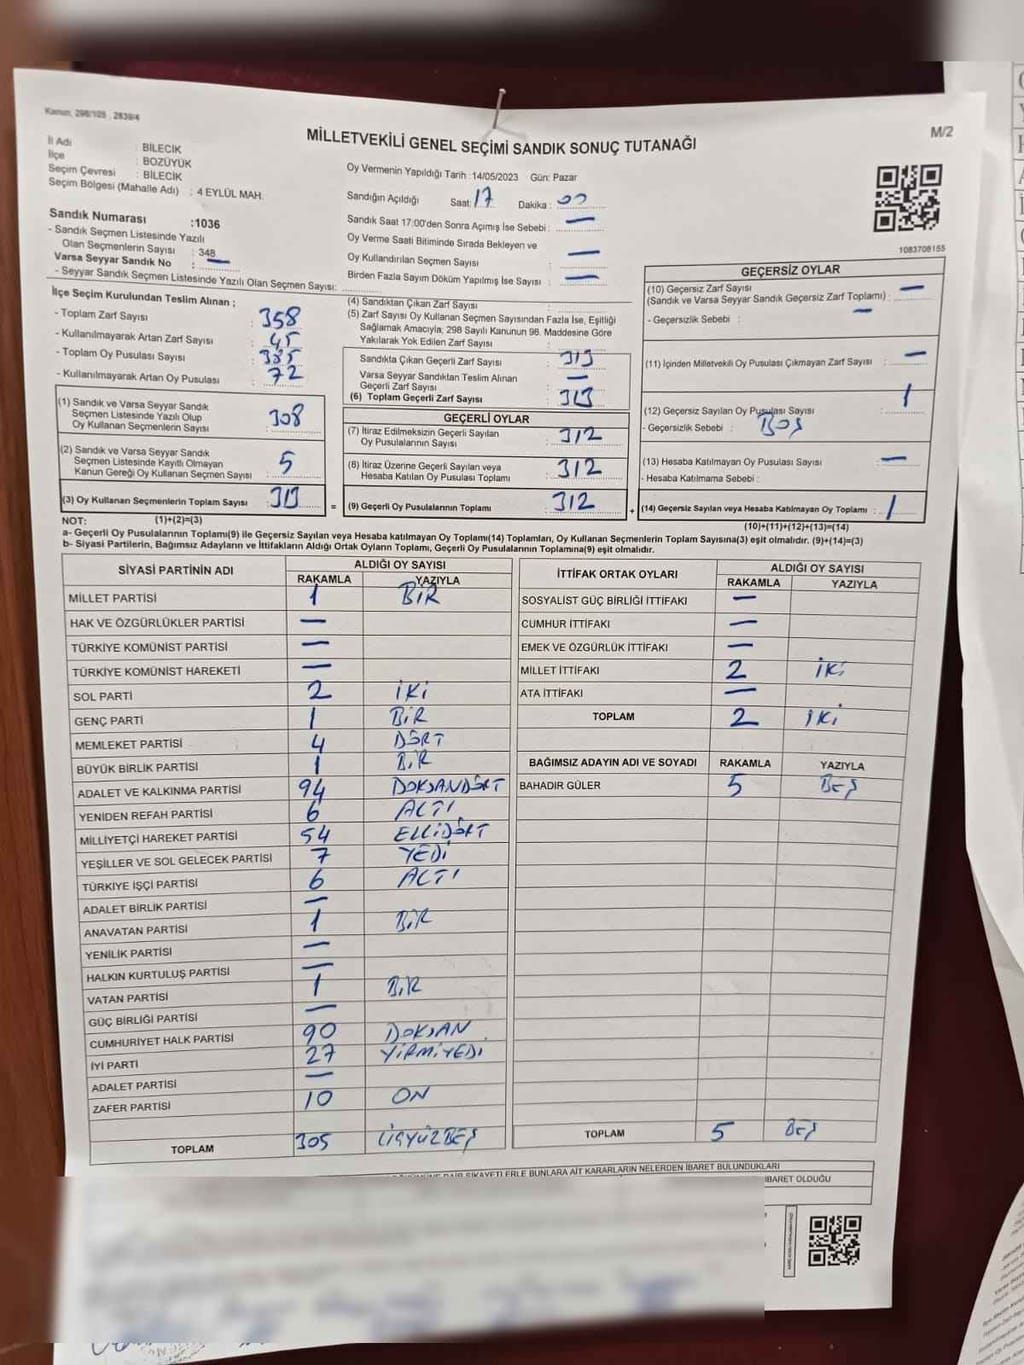 Kanun, 298/105 , 2839/4
M/2
MİLLETVEKİLİ GENEL SEÇİMİ SANDIK SONUÇ TUTANAĞI
İl Adı : BİLECİK
İlçe : BOZÜYÜK
Seçim Çevresi : BİLECİK
Seçim Bölgesi (Mahalle Adı) : 4 EYLÜL MAH.
Sandık Numarası :1036
- Sandık Seçmen Listesinde Yazılı
Olan Seçmenlerin Sayısı : 348
Varsa Seyyar Sandık No : —
- Seyyar Sandık Seçmen Listesinde Yazılı Olan Seçmen Sayısı:
Oy Vermenin Yapıldığı Tarih :14/05/2023 Gün: Pazar
Sandığın Açıldığı Saat: 17 Dakika : 00
Sandık Saat 17:00'den Sonra Açımış İse Sebebi : —
Oy Verme Saati Bitiminde Sırada Bekleyen ve
Oy Kullandırılan Seçmen Sayısı : —
Birden Fazla Sayım Döküm Yapılmış İse Sayısı : —
1083708155
İlçe Seçim Kurulundan Teslim Alınan ;
- Toplam Zarf Sayısı : 358
- Kullanılmayarak Artan Zarf Sayısı : 45
- Toplam Oy Pusulası Sayısı : 385
- Kullanılmayarak Artan Oy Pusulası : 72
(1) Sandık ve Varsa Seyyar Sandık
Seçmen Listesinde Yazılı Olup
Oy Kullanan Seçmenlerin Sayısı : 308
(2) Sandık ve Varsa Seyyar Sandık
Seçmen Listesinde Kayıtlı Olmayan
Kanun Gereği Oy Kullanan Seçmen Sayısı : 5
(3) Oy Kullanan Seçmenlerin Toplam Sayısı : 313
(4) Sandıktan Çıkan Zarf Sayısı :
(5) Zarf Sayısı Oy Kullanan Seçmen Sayısından Fazla İse, Eşitliği
Sağlamak Amacıyla; 298 Sayılı Kanunun 98. Maddesine Göre
Yakılarak Yok Edilen Zarf Sayısı :
Sandıkta Çıkan Geçerli Zarf Sayısı : 313
Varsa Seyyar Sandıktan Teslim Alınan
Geçerli Zarf Sayısı : —
(6) Toplam Geçerli Zarf Sayısı : 313
GEÇERLİ OYLAR
(7) İtiraz Edilmeksizin Geçerli Sayılan
Oy Pusulalarının Sayısı : 312
(8) İtiraz Üzerine Geçerli Sayılan veya
Hesaba Katılan Oy Pusulası Toplamı : 312
= (9) Geçerli Oy Pusulalarının Toplamı : 312 +
GEÇERSİZ OYLAR
(10) Geçersiz Zarf Sayısı
(Sandık ve Varsa Seyyar Sandık Geçersiz Zarf Toplamı) : —
- Geçersizlik Sebebi : —
(11) İçinden Milletvekili Oy Pusulası Çıkmayan Zarf Sayısı : —
(12) Geçersiz Sayılan Oy Pusulası Sayısı : 1
- Geçersizlik Sebebi : BOŞ
(13) Hesaba Katılmayan Oy Pusulası Sayısı : —
- Hesaba Katılmama Sebebi :
(14) Geçersiz Sayılan veya Hesaba Katılmayan Oy Toplamı : 1
NOT: (1)+(2)=(3) (10)+(11)+(12)+(13)=(14)
a- Geçerli Oy Pusulalarının Toplamı(9) ile Geçersiz Sayılan veya Hesaba katılmayan Oy Toplamı(14) Toplamları, Oy Kullanan Seçmenlerin Toplam Sayısına(3) eşit olmalıdır. (9)+(14)=(3)
b- Siyasi Partilerin, Bağımsız Adayların ve İttifakların Aldığı Ortak Oyların Toplamı, Geçerli Oy Pusulalarının Toplamına(9) eşit olmalıdır.
SİYASİ PARTİNİN ADI ALDIĞI OY SAYISI
RAKAMLA YAZIYLA
MİLLET PARTİSİ 1 BİR
HAK VE ÖZGÜRLÜKLER PARTİSİ —
TÜRKİYE KOMÜNİST PARTİSİ —
TÜRKİYE KOMÜNİST HAREKETİ —
SOL PARTİ 2 İKİ
GENÇ PARTİ 1 BİR
MEMLEKET PARTİSİ 4 DÖRT
BÜYÜK BİRLİK PARTİSİ 1 BİR
ADALET VE KALKINMA PARTİSİ 94 DOKSANDÖRT
YENİDEN REFAH PARTİSİ 6 ALTI
MİLLİYETÇİ HAREKET PARTİSİ 54 ELLİDÖRT
YEŞİLLER VE SOL GELECEK PARTİSİ 7 YEDİ
TÜRKİYE İŞÇİ PARTİSİ 6 ALTI
ADALET BİRLİK PARTİSİ —
ANAVATAN PARTİSİ 1 BİR
YENİLİK PARTİSİ —
HALKIN KURTULUŞ PARTİSİ —
VATAN PARTİSİ 1 BİR
GÜÇ BİRLİĞİ PARTİSİ —
CUMHURİYET HALK PARTİSİ 90 DOKSAN
İYİ PARTİ 27 YİRMİYEDİ
ADALET PARTİSİ —
ZAFER PARTİSİ 10 ON
TOPLAM 305 ÜÇYÜZBEŞ
İTTİFAK ORTAK OYLARI ALDIĞI OY SAYISI
RAKAMLA YAZIYLA
SOSYALİST GÜÇ BİRLİĞİ İTTİFAKI —
CUMHUR İTTİFAKI —
EMEK VE ÖZGÜRLÜK İTTİFAKI —
MİLLET İTTİFAKI 2 İKİ
ATA İTTİFAKI —
TOPLAM 2 İKİ
BAĞIMSIZ ADAYIN ADI VE SOYADI RAKAMLA YAZIYLA
BAHADIR GÜLER 5 BEŞ
TOPLAM 5 BEŞ
ŞİKAYETLERLE BUNLARA AİT KARARLARIN NELERDEN İBARET BULUNDUKLARI
İBARET OLDUĞU